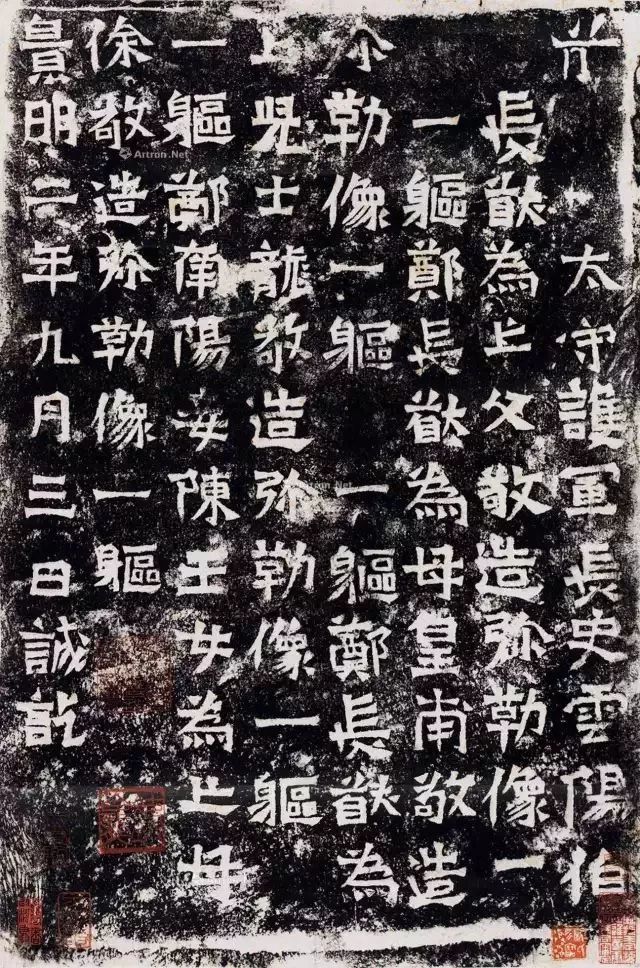 太守護軍長史雲陽伯
長猷為亡父敬造弥勒像一
一軀鄭長猷為母皇甫敬造
弥勒像一軀 一軀鄭長猷為
亡児士龍敬造弥勒像一軀
一軀鄭南陽妾陳玉女為亡母
徐敬造弥勒像一軀
景明二年九月三日誡訖
Artron.Net